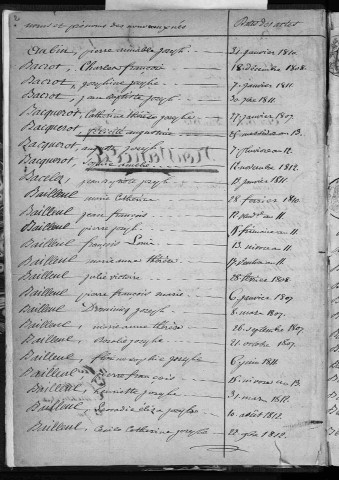 noms et prénoms des nouveaux nés Dates des actes
pierre aimable joseph 31 janvier 1811.
Bacrot, Charles françois 18 décembre 1808.
Bacrot, joseph 7 janvier 1811.
Bacrot, jean baptiste joseph 30 1811.
Bacquerot, Catherine thérèse josephe 27 janvier 1807.
Bacquerot, augustine 13.
Bacquerot, joseph 7 12.
Bacquerot, Sophie amélie 12 novembre 1812.
joseph 15 janvier 1811.
Bailleul, marie Catherine 28 février 1810.
Bailleul, jean françois 12 11.
Bailleul, pierre joseph 18 frimaire an 11.
Bailleul, françois Louis 13 nivose an 11.
Bailleul, marie anne thérèse 11.
Bailleul, julie victoire 28 février 1808.
Bailleul, pierre françois marie 6 janvier 1807.
Bailleul, joseph 8 mars 1807.
Bailleul, marie anne thérèse 26 septembre 1807.
Bailleul, Rosalie josephe 21 octobre 1807.
Bailleul, josephe 6 juin 1811.
Bailleul, pierre françois 18 nivose an 13.
Bailleul, henriette josephe 31 mars 1812.
Bailleul, Leocadie eliza josephe 10 août 1812.
Bailleul, Catherine josephe 22 1812.